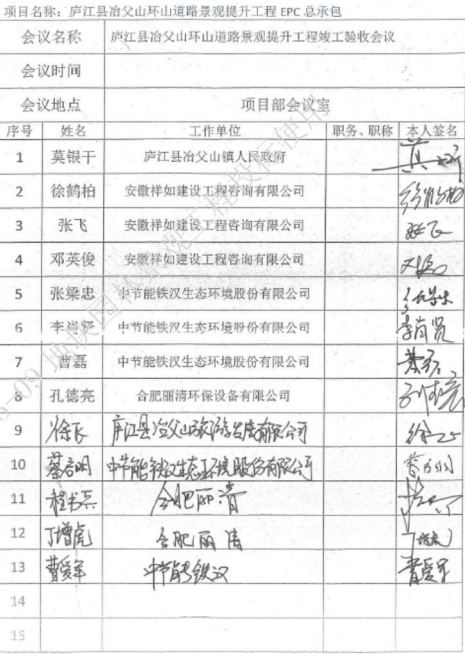 项目名称：庐江县冶父山环山道路景观提升工程 EPC 总承包
会议名称 庐江县冶父山环山道路景观提升工程竣工验收会议
会议时间
会议地点 项目部会议室
序号 姓名 工作单位 职务、职称 本人签名
1 莫银干 庐江县冶父山镇人民政府
2 徐鹤柏 安徽祥如建设工程咨询有限公司
3 张飞 安徽祥如建设工程咨询有限公司 张飞
4 邓英俊 安徽祥如建设工程咨询有限公司
5 张梁忠 中节能铁汉生态环境股份有限公司
6 李肖贤 中节能铁汉生态环境股份有限公司 李肖贤
7 曹磊 中节能铁汉生态环境股份有限公司 曹磊
8 孔德亮 合肥丽清环保设备有限公司
9 徐 庐江县冶父山旅游发展有限公司 徐
10 蔡 明 中节能铁汉生态环境股份有限公司
11 程书兵 合肥丽清
12 丁增虎 合肥丽清 丁增虎
13 曹爱军 中节能铁汉 曹爱军
14
15